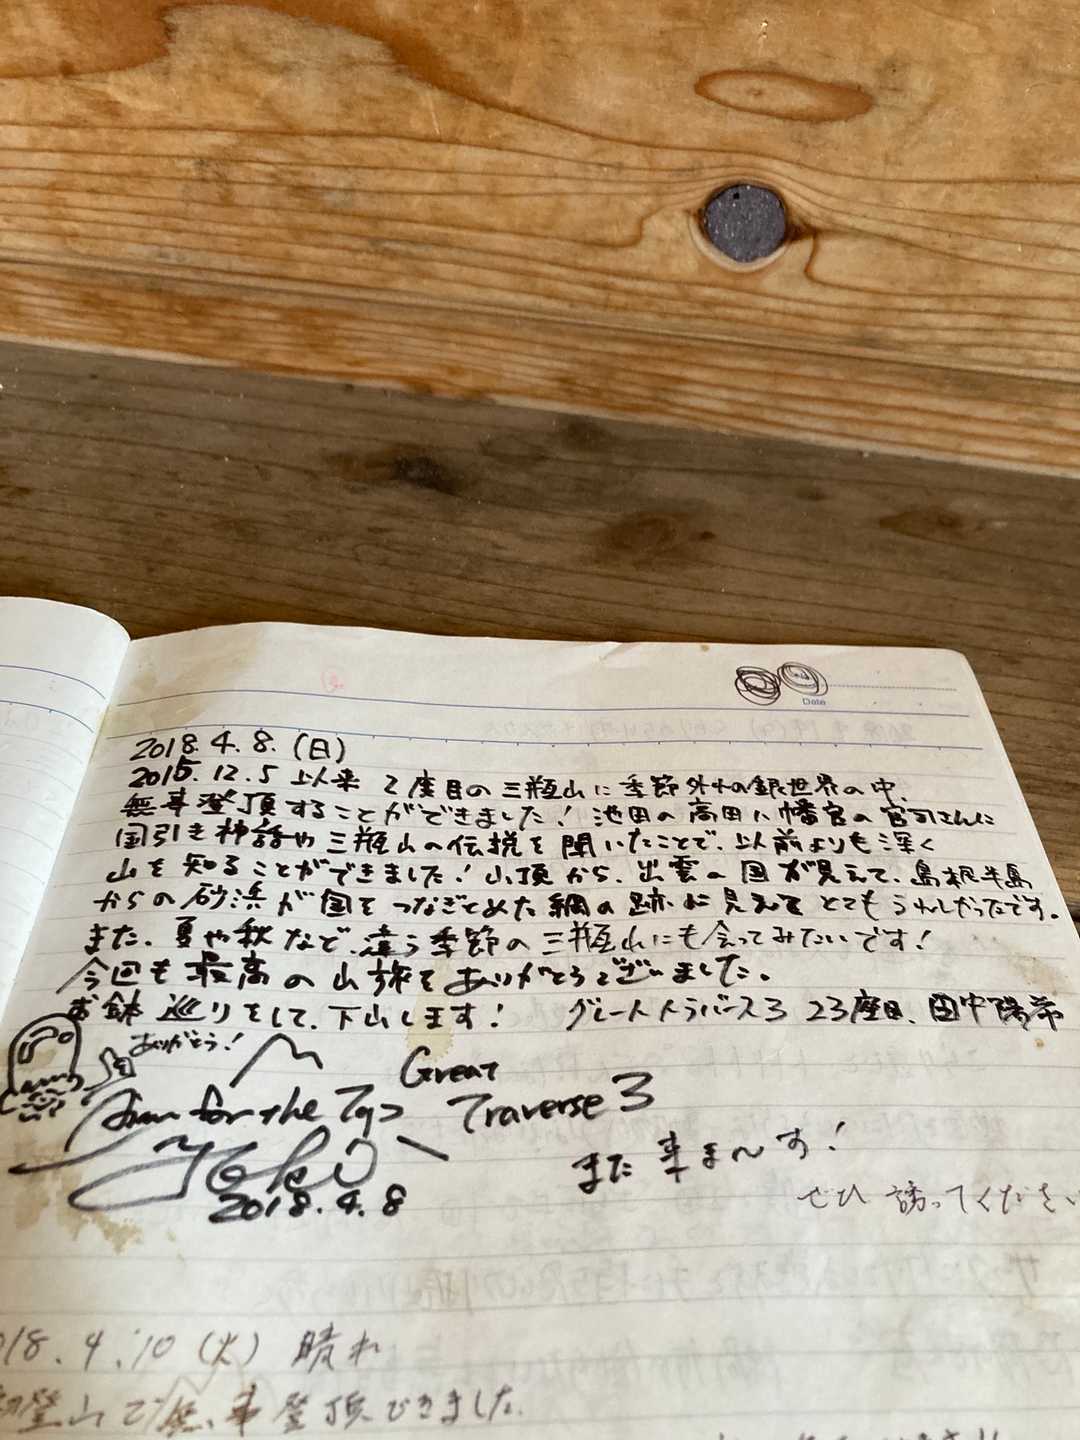 Date
2018. 4. 8. (日)
2015. 12. 5 以来 2度目の三瓶山に季節外れの銀世界の中、
無事登頂することができました! 池田の高田八幡宮の宮司さんに
国引き神話や三瓶山の伝説を聞いたことで、以前よりも深く
山を知ることができました! 山頂から、出雲の国が見えて、島根半島
からの砂浜が国をつなぎとめた綱の跡に見えてとてもうれしかったです。
また、夏や秋など、違う季節の三瓶山にも会ってみたいです!
今回も最高の山旅をありがとうございました。
お鉢巡りをして、下山します! グレートトラバース3 23座目、田中陽希
ありがとう!
Great
for the Top Traverse 3
Yoki
2018. 4. 8
また来ま〜す!
ぜひ誘ってください
018. 4. 10 (火) 晴れ
初登山で無事登頂できました。